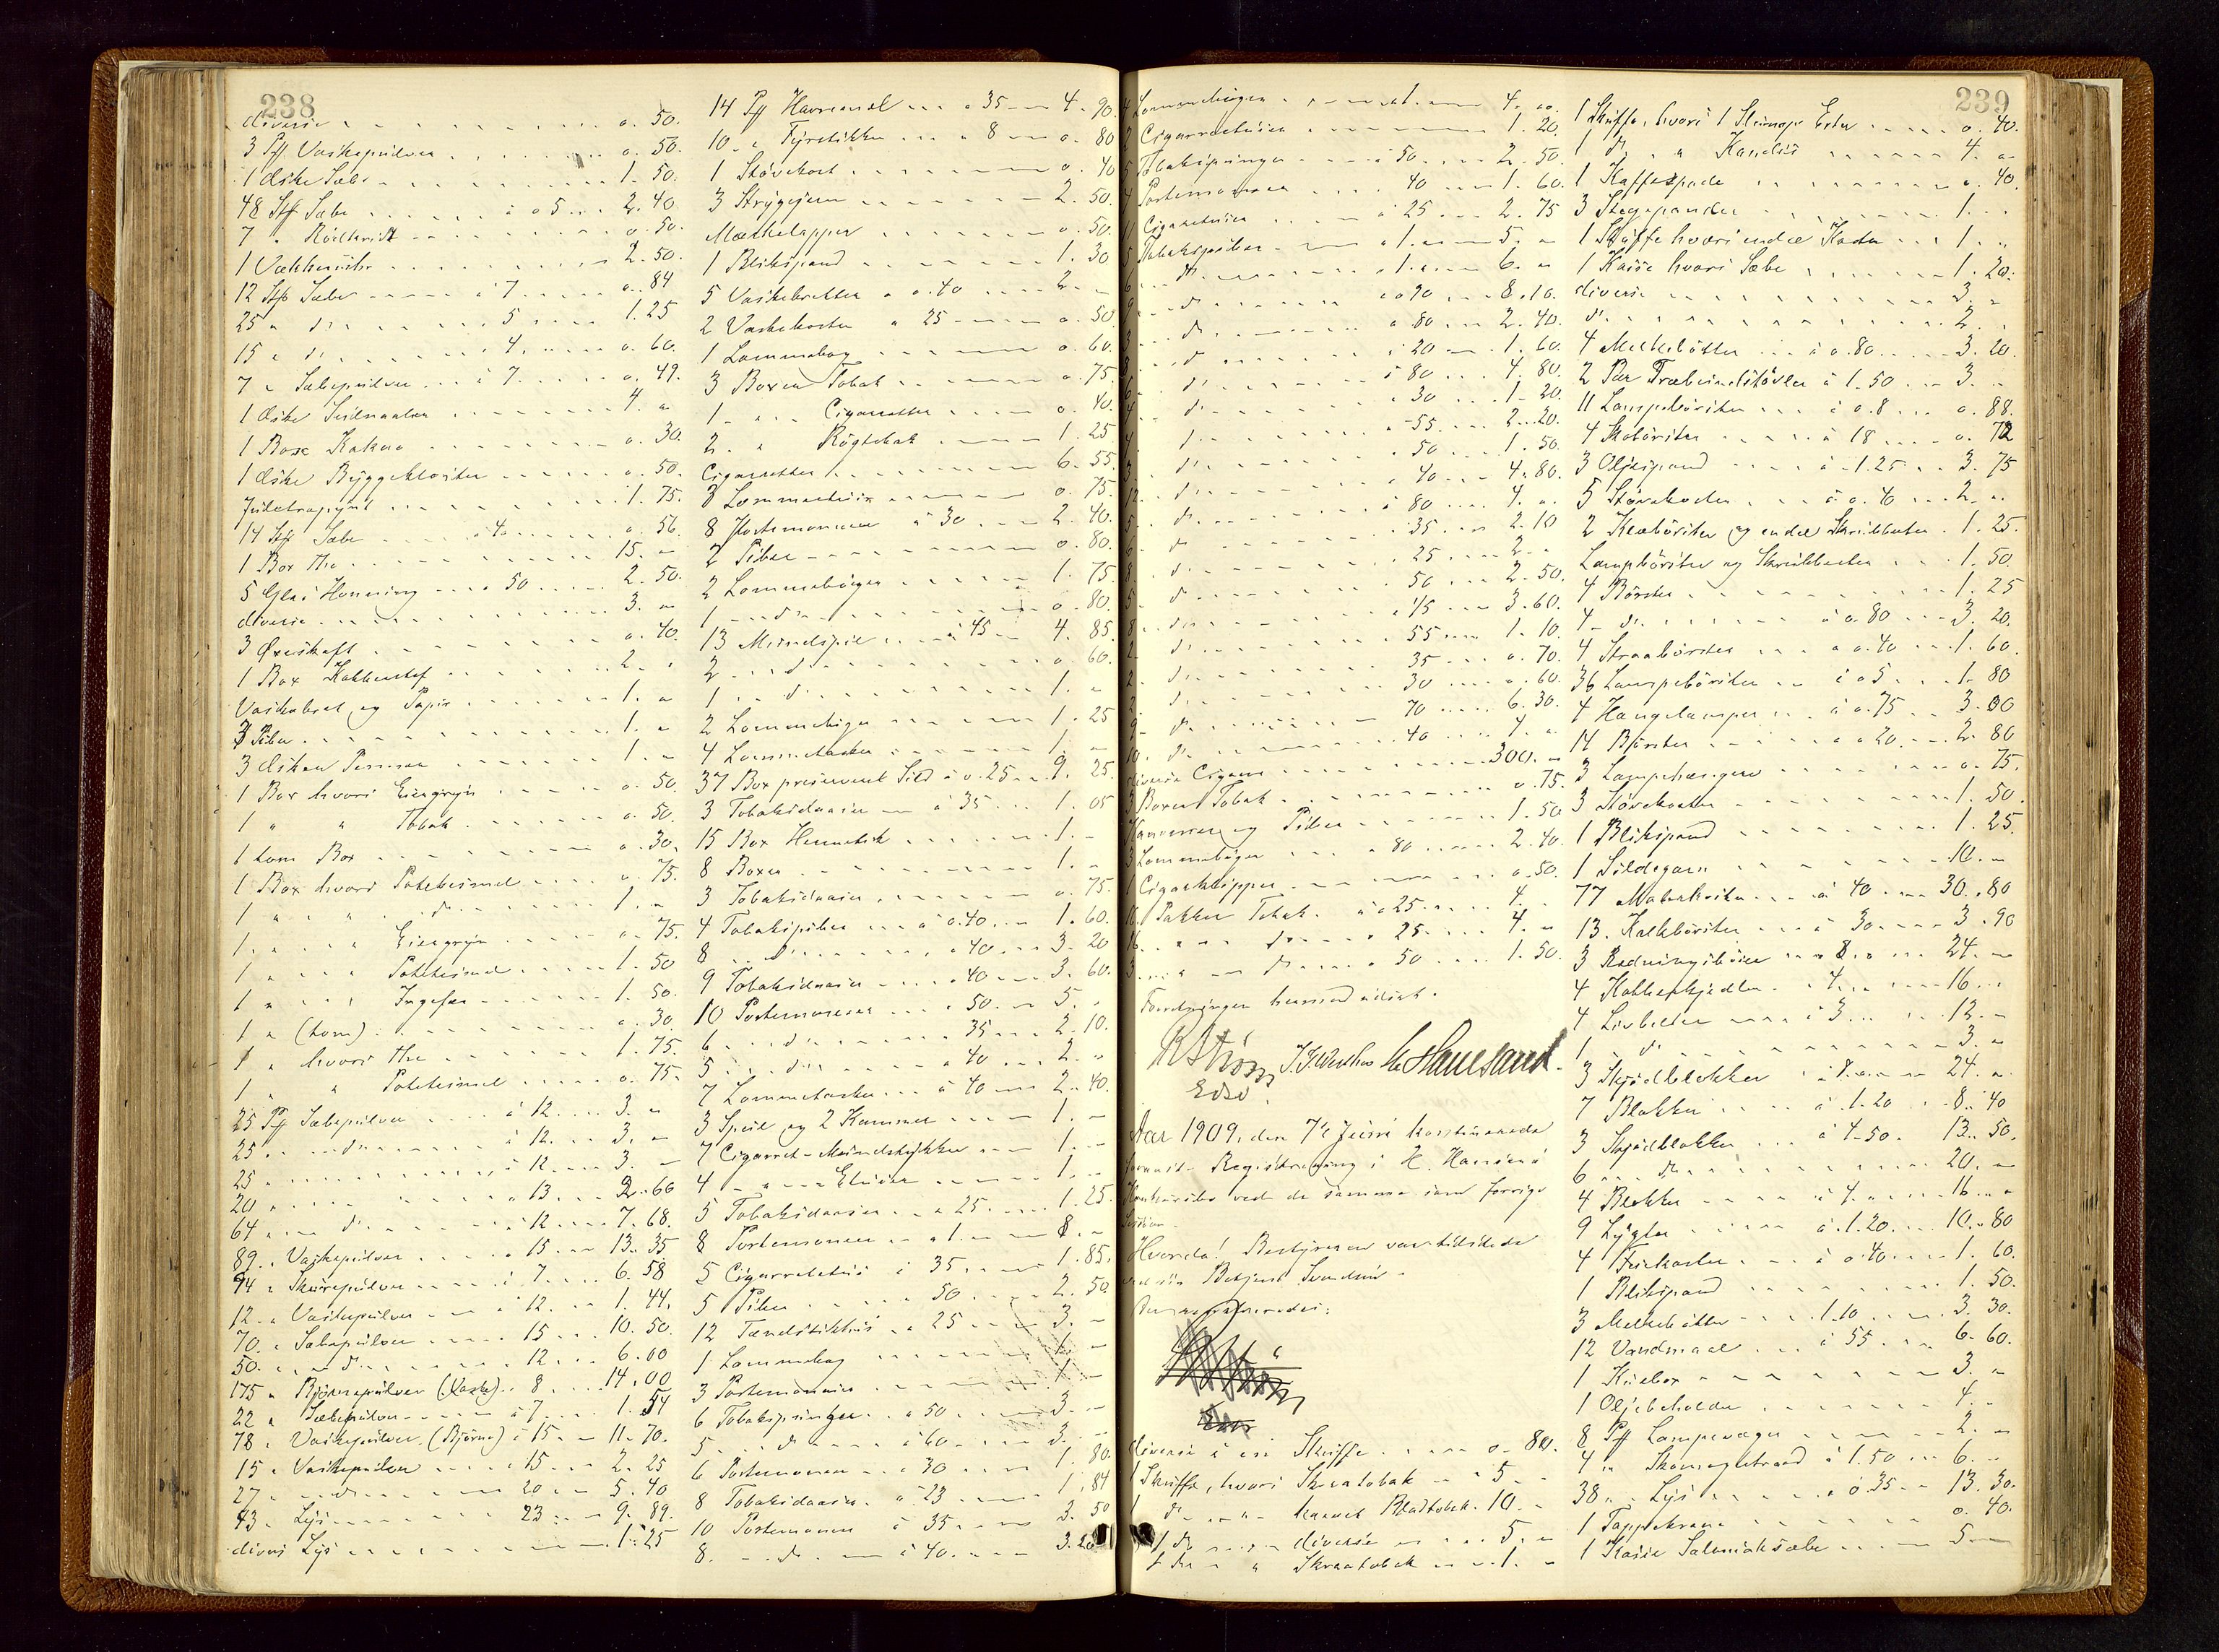 238
diverse - - - o. 50.
3 Pk Vaskepulver - - - o. 50.
1 Æske Sæbe - - - 1. 50.
48 Stk Sæbe - - - à o 5 - - 2. 40.
7 " - - - o. 50.
1 Vækkeruhr - - - 2. 50.
12 Stk Sæbe - - - à 7 - - o. 84
25 " do - - - 5 - - 1. 25
15 " do - - - 4 - - o. 60.
7 " Sæbepulver - - - à 7 - - o. 49.
1 Æske - - - 4. "
1 Box Kakao - - - o. 30.
1 Æske - - - o. 50.
Juletrepynt - - - 1. 75.
14 Stk Sæbe - - - à 4 - - o. 56.
1 Box The - - - 15. "
5 Glas Honning - - - a 50 - - 2. 50.
diverse - - - 3. "
3 Øxeskaft - - - o. 40.
1 Box - - - 2. "
Vaskebret og Papir - - - 1. "
3 Piber - - - 1. "
3 Æsker Penner - - - 1. "
1 Box hvori Sagogryn - - - o. 50.
1 " " Tobak - - - o. 50.
1 tom Box - - - o. 30.
1 Box hvori Potetesmel - - - o. 75.
1 " " do - - - 1. "
1 " " - - - o. 75.
1 " " Potetesmel - - - 1. 50
1 " " Ingefær - - - 1. 50.
1 " (tom) - - - o. 30
1 " hvori The - - - 1. 75.
1 " " Potetesmel - - - o. 75.
25 Pk Sæbepulver - - - à 12 - - 3. "
25 " do - - - à 12 - - 3. "
25 " - - - à 12 - - 3. "
20 " - - - à 13 - - 2. 60
64 " do - - - à 12 - - 7. 68.
89 " Vaskepulver - - - à 15 - - 13. 35
94 " Skurepulver - - - à 7 - - 6. 58
12 " Vaskepulver - - - à 12 - - 1. 44.
70 " Sæbepulver - - - 15 - - 10. 50.
50 " do - - - 12 - - 6. 00
175 " Bjørnepulver (Vask) - - 8 - - 14. 00
22 " Sæbepulver - - - à 7 - - 1. 54
78 " Vaskepulver (Bjørne) à 15 - - 11. 70.
15 " Vaskepulver - - - 15 - - 2. 25
27 " do - - - 20 - - 5. 40
43 " Lys - - - 23 - - 9. 89.
divers Lys - - - 1. 25
14 Pk Havremel - - - à 35 - - 4. 90.
10 " Fyrstikker - - - à 8 - - o. 80
1 Støvekost - - - o. 40
3 Strygejern - - - 2. 50.
Mærkelapper - - - o. 50.
1 Blikspand - - - 1. 30
5 Vaskebretter a o. 40 - - 2. "
2 Vaskekoster a 25 - - o. 50.
1 Lommebog - - - o. 60.
3 Boxer Tobak - - - o. 75.
1 " Cigaretter - - - o. 40.
2 " Røgtobak - - - 1. 25
Cigaretter - - - 6. 55.
3 - - - o. 75.
8 Portemonnæer à 30 - - 2. 40.
2 Piber - - - o. 80.
2 Lommebøger - - - 1. 75.
1 - do - - - o. 80.
13 Mundspil - - - à 45 - - 4. 85.
2 - do - - - o. 60.
1 - do - - - 1. "
2 Lommebøger - - - 1. 25
4 Lommetasker - - - 1. "
37 Box preserveret Sild à o. 25 - - 9. 25.
3 Tobaksdaaser - - à 35 - - 1. 05
15 Box Hermetik - - - 1. -
8 Boxer - - - 1. "
3 Tobaksdaaser - - - o. 75.
4 Tobakspiber - - - à o. 40. - - 1. 60.
8 - do - - - à 40 - - 3. 20
9 Tobaksdaaser - - - à 40 - - 3. 60.
10 Portemonæer - - - à 50 - - 5. "
6 - do - - - 35 - - 2. 10.
5 - do - - - à 40 - - 2. "
7 Lommetasker - - à 40 - - 2. 40.
3 Speil og 2 Kammer - - - 1. -
7 Cigaret-Mundstykker - - - 1. -
4 - - Etuier - - - 1. "
5 Tobaksdaaser - - à 25 - - 1. 25.
8 Portemonæer - - à 1. - - 8. -
5 Cigaretetui à 35 - - 1. 85.
5 Piber - - - 50 - - 2. 50
12 Tændstikhus - - à 25 - - 3. -
1 Lommebog - - - 1. -
3 Portemonnæer - - - 1. -
6 Tobakspunger - - à 50 - - 3. -
5 - do - - - à 60 - - 3. -
6 Portemonæer - - à 30 - - 1. 80.
8 Tobaksdaaser - - à 23 - - 1. 84
10 Portemonæer à 35 - - 3. 50
8 - do - - à 40 - - 3. 20
239
4 Lommebøger - - - à 1. - - 4. oo.
Cigaretetuier - - - 1. 20.
5 Tobakspunger - - - à 50 - - 2. 50.
4 Portemonæer - - - 40 - - 1. 60.
11 Cigaretuier - - - à 25 - - 2. 75
5 Tobakspiber - - - à 1. - - 5. "
6 - do - - - à 1. - - 6. "
9 - do - - - à o 90 - - 8. 10.
3 - do - - - à 80 - - 2. 40.
8 - do - - - à 20 - - 1. 60.
6 - do - - - à 80 - - 4. 80.
4 - do - - - à 30 - - 1. 20.
4 - do - - - 55 - - 2. 20.
3 - do - - - 50 - - 1. 50.
12 - do - - - à 40 - - 4. 80.
5 - do - - - à 80 - - 4. "
6 - do - - - 35 - - 2. 10
8 - do - - - 25 - - 2. -
5 - do - - - 50 - - 2. 50.
8 - do - - - à 45 - - 3. 60.
2 - do - - - 55 - - 1. 10.
2 - do - - - 35 - - o. 70.
2 - do - - - 30 - - o. 60.
9 - do - - - 70 - - 6. 30.
10 - do - - - 40 - - 4. "
diverse Cigarer - - - 300. "
3 Boxer Tobak - - - o. 75.
og Piber - - - 1. 50
3 Lommebøger - - - à 80 - - 2. 40.
1 Cigarklipper - - - o. 50.
16 Pakker Tobak - à o 25 - - 4. "
16 - do - - - à 25 - - 4. "
3 - do - - - à 50 - - 1. 50.
Forretningen hermed udsat.
KStrøm
Edsv.
Aar 1909, den 7de Juni kontinuerede
Registrering i H. Hansens
Konkursbo ved de samme som forrige
Session.
Hvorda! Bestyreren var tilstede
ved sin Betjent Svendsen.
diverse i en Skuffe - - - o. 80.
1 Skuffe, hvori Skraatobak - - 5. -
1 do - - Bladtobak. 10. -
1 do - - diverse - - - 5. -
1 do - " Skraatobak - - 1. -
1 Skuffe, hvori 1 Slump Erter - - o. 40.
1 do " " Kandis - - - 4. "
1 Kaffespade - - - o. 40.
3 Stegepander - - - 1. "
1 Skuffe hvori endel Korker - - 1. "
1 Kasse hvori Sæbe - - - 1. 20.
diverse - - - 3. "
do - - - 2. "
4 Melkebøtter - - à o. 80 - - 3. 20.
2 Par Træbundstøvler à 1. 50 - - 3. "
11 Lampebørster - - à o. 8 - - o. 88.
4 Skobørster - - - à 18 - - o. 72
3 Oljespand - - - à 1. 25 - - 3. 75
5 Støvekoster - - à o. 40 - - 2. "
2 Klæbørster og endel Skrubber - 1. 25.
Lampebørster og Skrubber - - 1. 50.
4 Børster - - - 1. 25
4 - do - - - à o. 80 - - 3. 20.
4 Straabørster - - à o. 40 - - 1. 60.
36 Lampebørster - - à o 5 - - 1. 80
4 Hængelamper - - à o. 75 - - 3. 00
14 Børster - - - à 20 - - 2. 80
3 Lampehængere - - - o. 75.
3 Støvekoster - - - 1. 50.
1 Blikspand - - - 1. 25.
1 Sildegarn - - - 10. "
77 Malerkoster - - à 40 - - 30. 80
13 Kalkbørster - - à 30 - - 3. 90
3 Redningsbøier - - à 8. - - 24. "
4 Kobberkjedler - - 4. - - 16. "
4 Livbelter - - à 3 - - 12. "
1 - do - - - 3. "
3 Skjødblokker - à 8. - - 24. "
7 Blokker - - - à 1. 20 - - 8. 40
3 Skjødblokker - - à 4. 50. 13. 50.
6 - do - - - 20. "
4 Blokker - - - à 4. - - 16. "
9 Lygter - - - à 1. 20. - - 10. 80
4 - - - à o. 40. - - 1. 60.
1 Blikspand - - - 1. 50.
3 Melkebøtter - - - 1. 10 - - 3. 30.
12 Vandmaal - - - à 55 - - 6. 60.
1 - - - 3. "
1 Oljebeholder - - - 4. -
8 Pk Lampevæger - - - 2. "
4 " Skomagertraad à 1. 50 - - 6. "
38 " Lys - - - à o. 35 - - 13. 30.
1 Tappekrane - - - o. 40.
1 Kasse Salmiaksæbe - - - 5. -